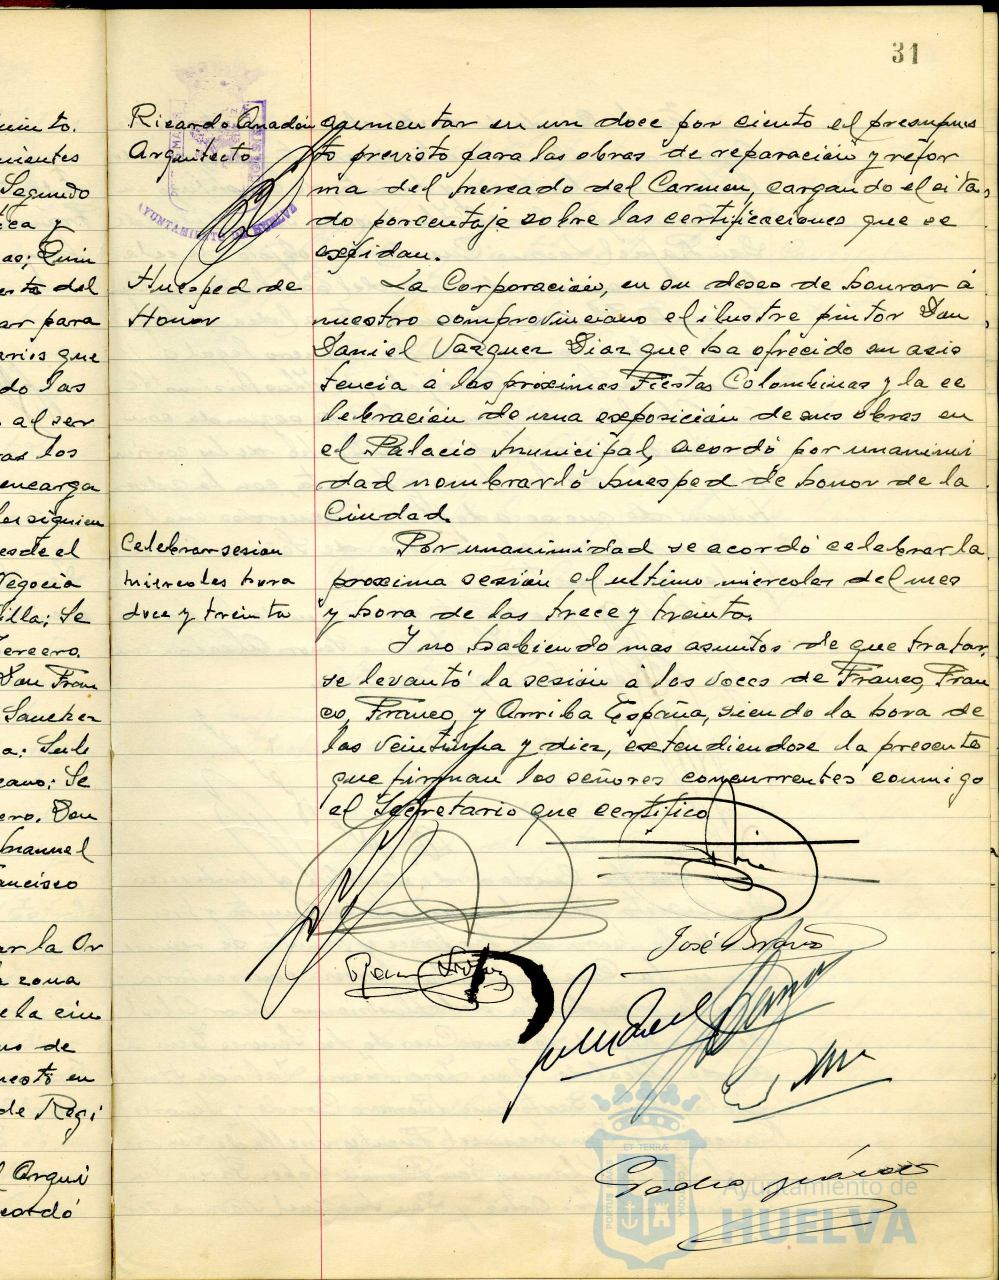 31
Ricardo Anadón
Arquitecto
AYUNTAMIENTO DE HUELVA
aumentar en un doce por ciento el presupues
to previsto para las obras de reparación y refor
ma del mercado del Carmen, cargando el cita
do porcentaje sobre las certificaciones que se
expidan.
Huesped de
Honor
La Corporación, en su deseo de honrar á
nuestro comprovinciano el ilustre pintor Don
Daniel Vazquez Diaz que ha ofrecido su asis
tencia á las próximas Fiestas Colombinas y la ce
lebración de una exposición de sus obras en
el Palacio municipal, acordó por unanimi
dad nombrarló huesped de honor de la
Ciudad.
Celebrar sesion
miercoles hora
doce y treinta
Por unanimidad se acordó celebrar la
proxima sesión el ultimo miercoles del mes
y hora de las trece y treinta.
Y no habiendo mas asuntos de que tratar,
se levantó la sesión á las voces de Franco, Fran
co, Franco, y Arriba España, siendo la hora de
las veintiuna y diez, extendiendose la presente
que firman los señores concurrentes conmigo
el Secretario que certifico
José Bravo
ET TERRÆ
Ayuntamiento de
HUELVA
uiento.
nientes
Segundo
ar para
arios que
do las
al ser
ras los
encarga
los siguien
esde el
Negocia
illa; Se
Tercero.
Don Fran
Sanchez
cano; Se
ero. Don
manuel
ancisco
ar la Or
zona
de la ciu
as de
uesto en
de Regi
Arqui
cordó